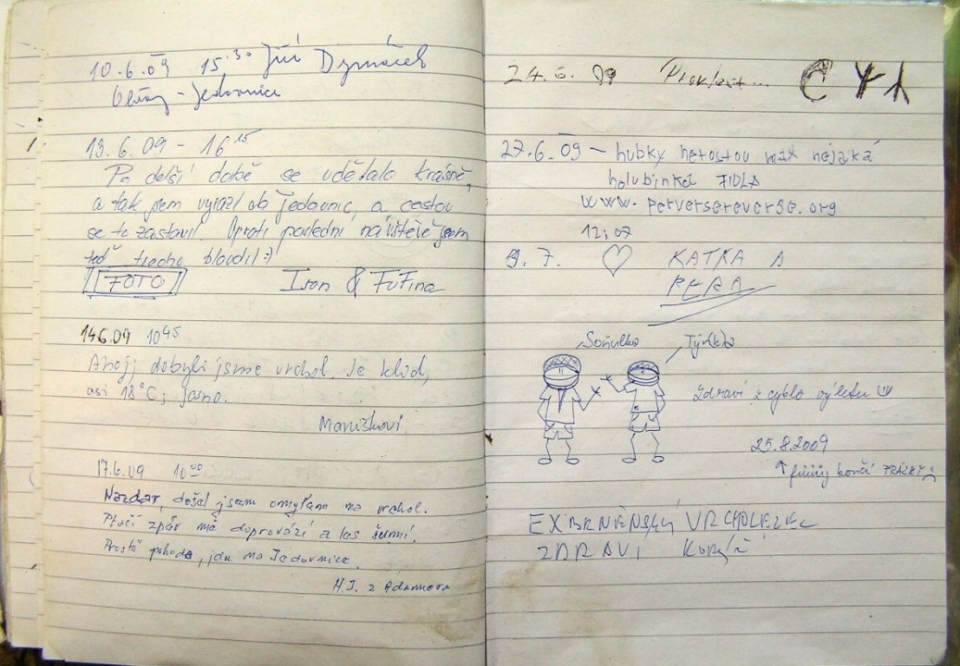 10.6.09 15.30 Jiří Dymáček
- Jedovnice
13.6.09 - 16 15
Po delší době se udělalo krásně,
a tak jsem vyrazil ob Jedovnic, a cestou
se tu zastavil. Oproti poslední návštěvě jsem
teď trochu bloudil :)
FOTO Iron & FuFina
14.6.09 10 45
Ahoj, dobyli jsme vrchol. Je klid,
asi 18°C, jasno.
Maruškovi
17.6.09 10 00
Nazdar, došel jsem omylem na vrchol.
Ptačí zpěv mě doprovází a les šumí.
Prostě pohoda, jdu na Jedovnice.
H.J. z Adamova
24.6.09
27.6.09 - hubky nerostou max nějaká
holubinka FIDLA
www.perversereverse.org
12:07
9.7. KATKA A
PEPA
Soňulka
zdraví z cyklo výletu
25.8.2009
končí
EXBRNĚNSKÝ VRCHOLEZEC
ZDRAVÍ